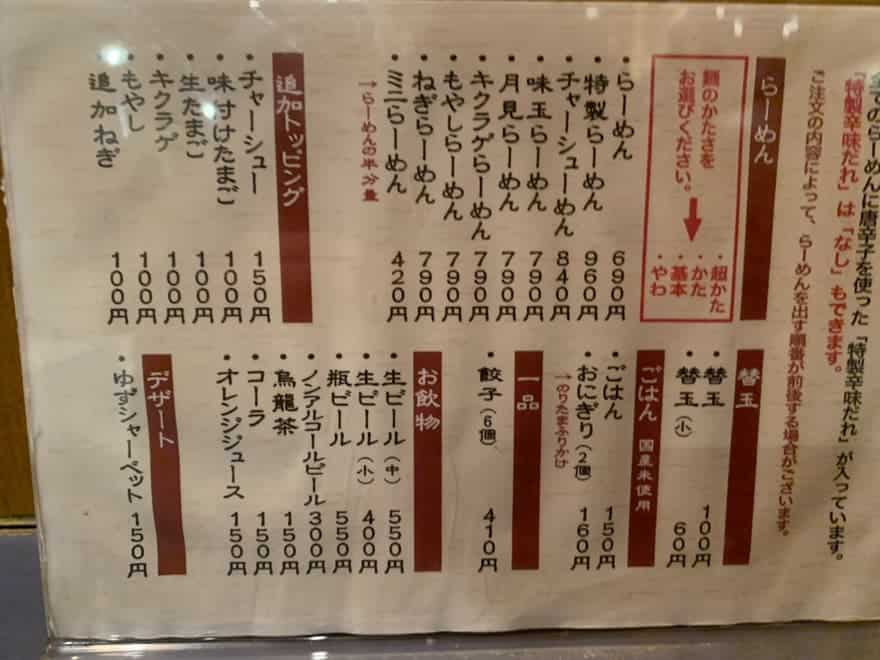 全てのらーめんに唐辛子を使った「特製辛味だれ」が入っています。
「特製辛味だれ」は「なし」もできます。
ご注文の内容によって、らーめんを出す順番が前後する場合がございます。
らーめん
麺のかたさを
お選びください。
・超かた
・かた
・基本
・やわ
・らーめん 690円
・特製らーめん 960円
・チャーシューめん 840円
・味玉らーめん 790円
・月見らーめん 790円
・キクラゲらーめん 790円
・もやしらーめん 790円
・ねぎらーめん 790円
・ミニらーめん 420円
→らーめんの半分量
追加トッピング
・チャーシュー 150円
・味付けたまご 100円
・生たまご 100円
・キクラゲ 100円
・もやし 100円
・追加ねぎ 100円
替玉
・替玉 100円
・替玉(小) 60円
ごはん 国産米使用
・ごはん 150円
・おにぎり(2個) 160円
→のりたまふりかけ
一品
・餃子(6個) 410円
お飲物
・生ビール(中) 550円
・生ビール(小) 400円
・瓶ビール 550円
・ノンアルコールビール 300円
・烏龍茶 150円
・コーラ 150円
・オレンジジュース 150円
デザート
・ゆずシャーベット 150円